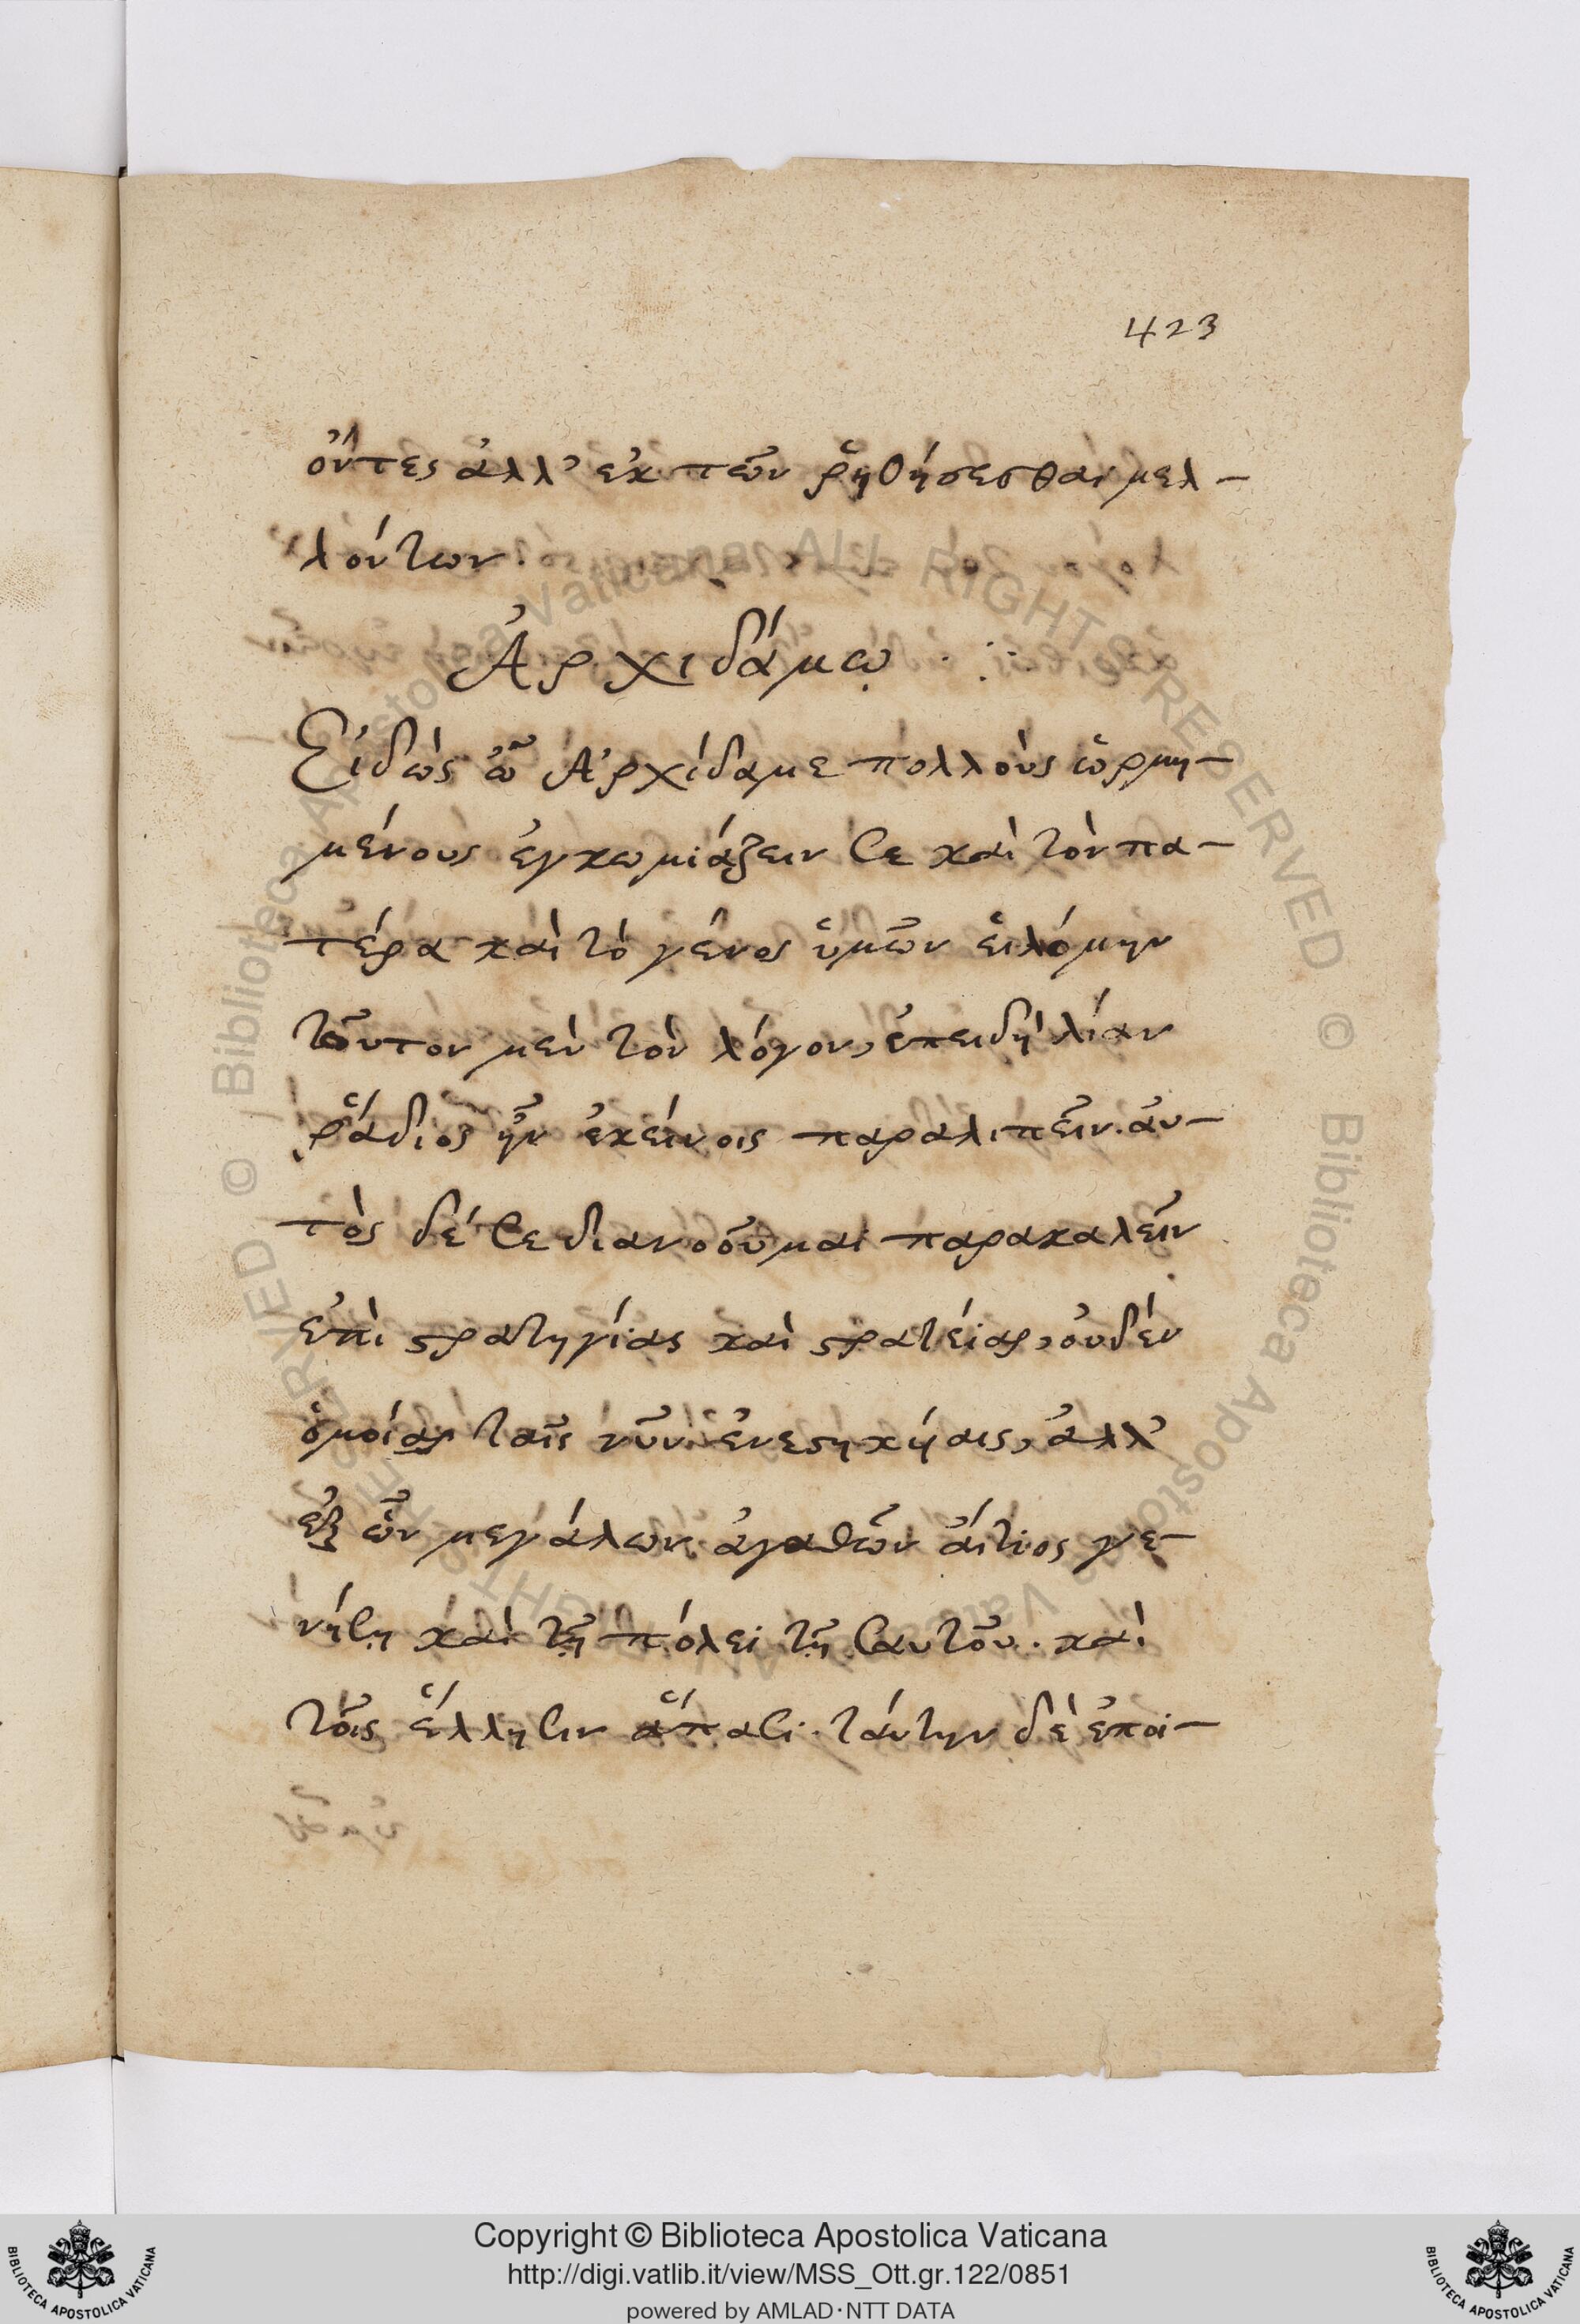 423
ὄντες ἀλλ' ἐκ τῶν ῥηθήσεσθαι μελ-
λόντων.
Ἀρχιδάμῳ
Εἰδὼς ὦ Ἀρχίδαμε πολλοὺς ὡρμη-
μένους ἐγκωμιάζειν σε καὶ τὸν πα-
τέρα καὶ τὸ γένος ὑμῶν εἱλόμην
τοῦτον μὲν τὸν λόγον, ἐπειδὴ λίαν
ῥάδιος ἦν ἐκείνοις παραλιπεῖν. αὐ-
τὸς δέ σε διανοοῦμαι παρακαλεῖν
ἐπὶ στρατηγίας καὶ στρατείας, οὐδὲν
ὁμοίας ταῖς νῦν ἐνεστηκυίαις, ἀλλ'
ἐξ ὧν μεγάλων ἀγαθῶν αἴτιος γε-
νήσῃ καὶ τῇ πόλει τῇ σαυτοῦ. καὶ
τοῖς ἕλλησιν ἅπασι. ταύτην δὲ ἐποι-
Copyright © Biblioteca Apostolica Vaticana
http://digi.vatlib.it/view/MSS_Ott.gr.122/0851
powered by AMLAD·NTT DATA
© Biblioteca Apostolica Vaticana ALL RIGHTS RESERVED
© Biblioteca Apostolica Vaticana ALL RIGHTS RESERVED
BIBLIOTECA APOSTOLICA VATICANA
BIBLIOTECA APOSTOLICA VATICANA